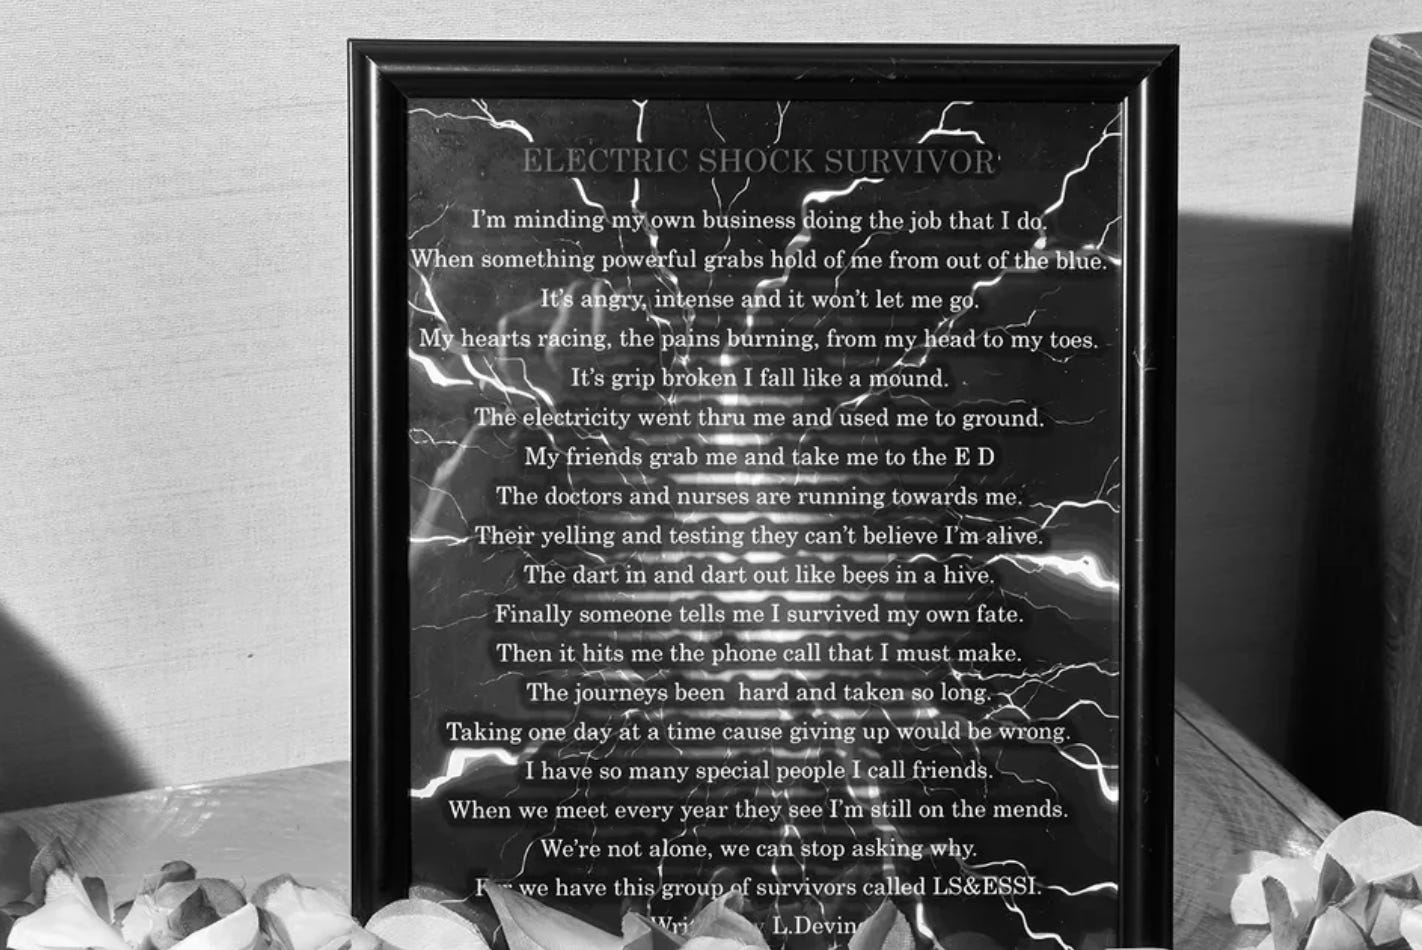 ELECTRIC SHOCK SURVIVOR
I'm minding my own business doing the job that I do.
When something powerful grabs hold of me from out of the blue.
It's angry, intense and it won't let me go.
My hearts racing, the pains burning, from my head to my toes.
It's grip broken I fall like a mound.
The electricity went thru me and used me to ground.
My friends grab me and take me to the E D
The doctors and nurses are running towards me.
Their yelling and testing they can't believe I'm alive.
The dart in and dart out like bees in a hive.
Finally someone tells me I survived my own fate.
Then it hits me the phone call that I must make.
The journeys been  hard and taken so long.
Taking one day at a time cause giving up would be wrong.
I have so many special people I call friends.
When we meet every year they see I'm still on the mends.
We're not alone, we can stop asking why.
we have this group of survivors called LS&ESSI.